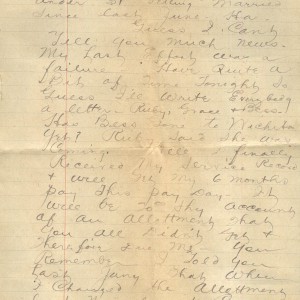 Since Last June. Ha.
Guess I Can't
Tell You Much News.
My Last Effort was a
failure. Have Quite a
Bit of Time Tonight So
Guess I'll Write Everybody
a letter. Ruby, Grace &
Has Bess Gone To
Yet? Ruby
Coming. Well finally
Received My Service Record
& will get My 6 months
Pay This Pay Day. It
will be To My Account
of An Allottment That
You all Didn't Get &
Therefore Due Me. You
Remember I Told You
Last Jany That When
I Changed the Allottment